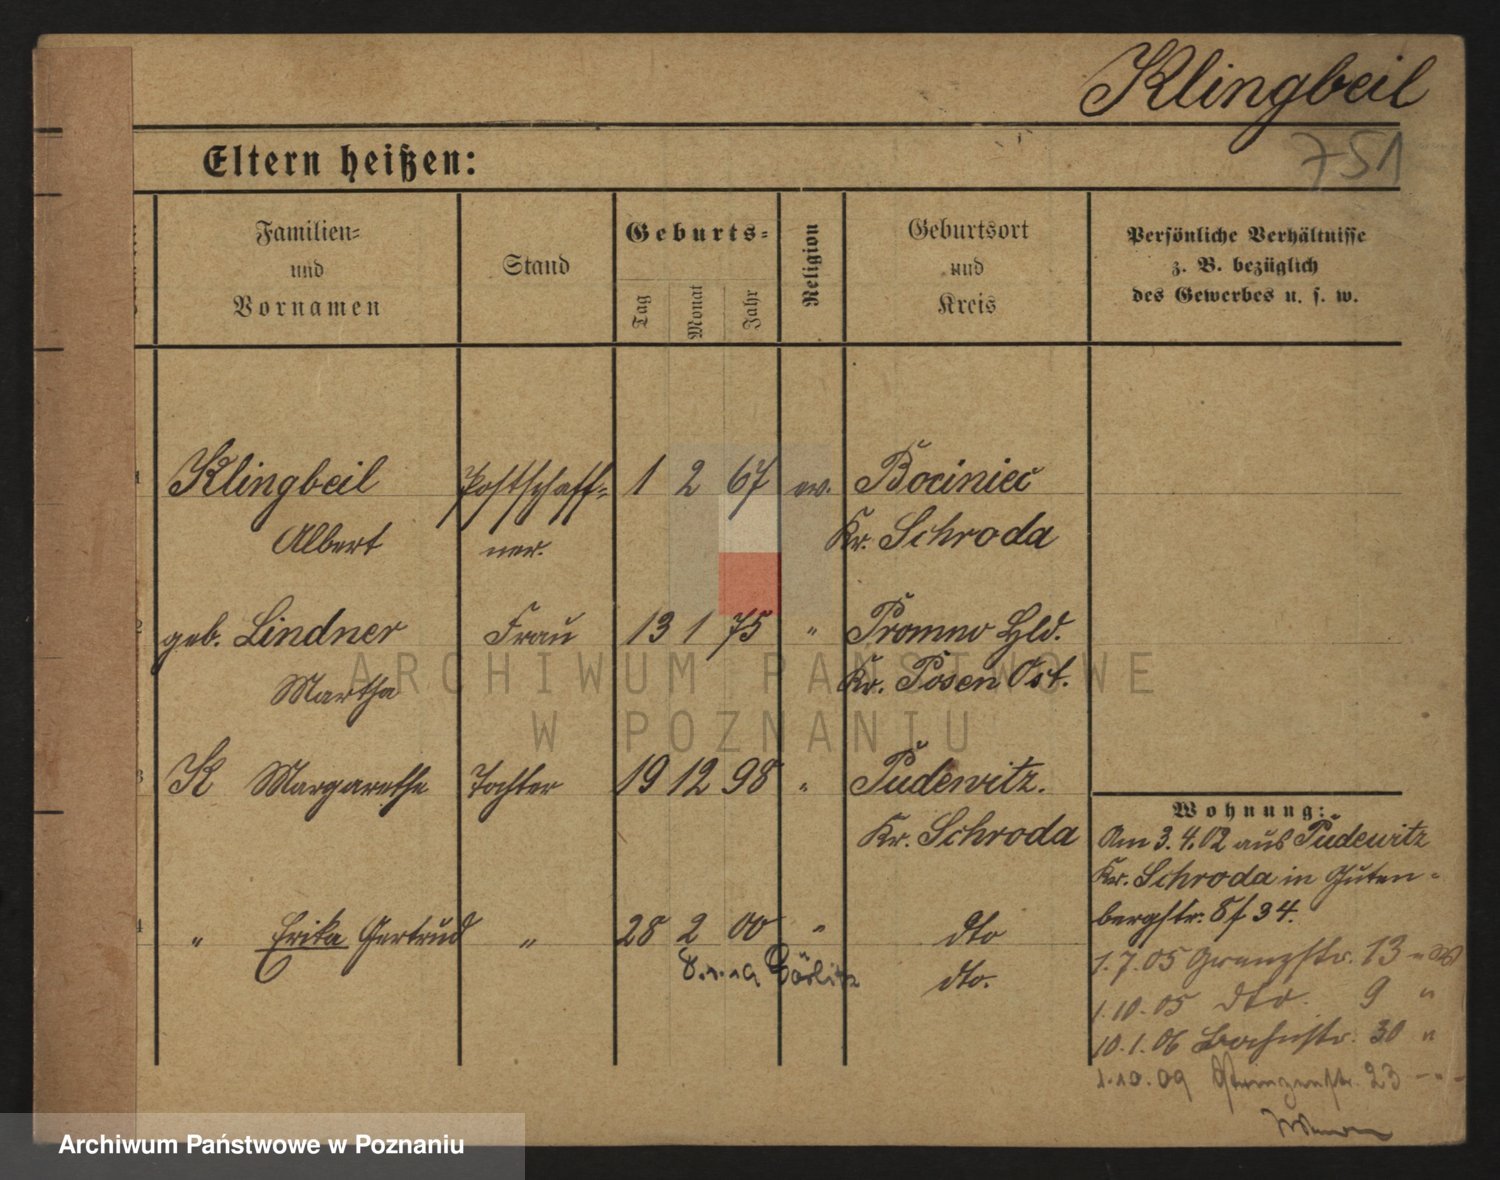 Klingbeil
751
Eltern heißen:
Familien-
und
Vornamen
Stand
Geburts-
Tag
Monat
Jahr
Religion
Geburtsort
und
Kreis
Persönliche Verhältnisse
z. B. bezüglich
des Gewerbes u. s. w.
1 Klingbeil Postschaff- 1 2 67 ev. Bociniec
Albert ner. Kr. Schroda
2 geb. Lindner Frau 13 1 75 " Promno Hld.
Martha Kr. Posen Ost.
3 K Margarethe Tochter 19 12 98 " Pudewitz.
Kr. Schroda
Wohnung:
Am 3.4.02 aus Pudewitz
Kr. Schroda in Guten-
bergstr: 8 f 34.
4 " Erika Gertrud " 28 2 00 " dto
dto.
1.7.05 Grenzstr. 13
1.10.05 dto. 9 "
10.1.06 30 "
1.10.09 23
ARCHIWUM PAŃSTWOWE
W POZNANIU
Archiwum Państwowe w Poznaniu